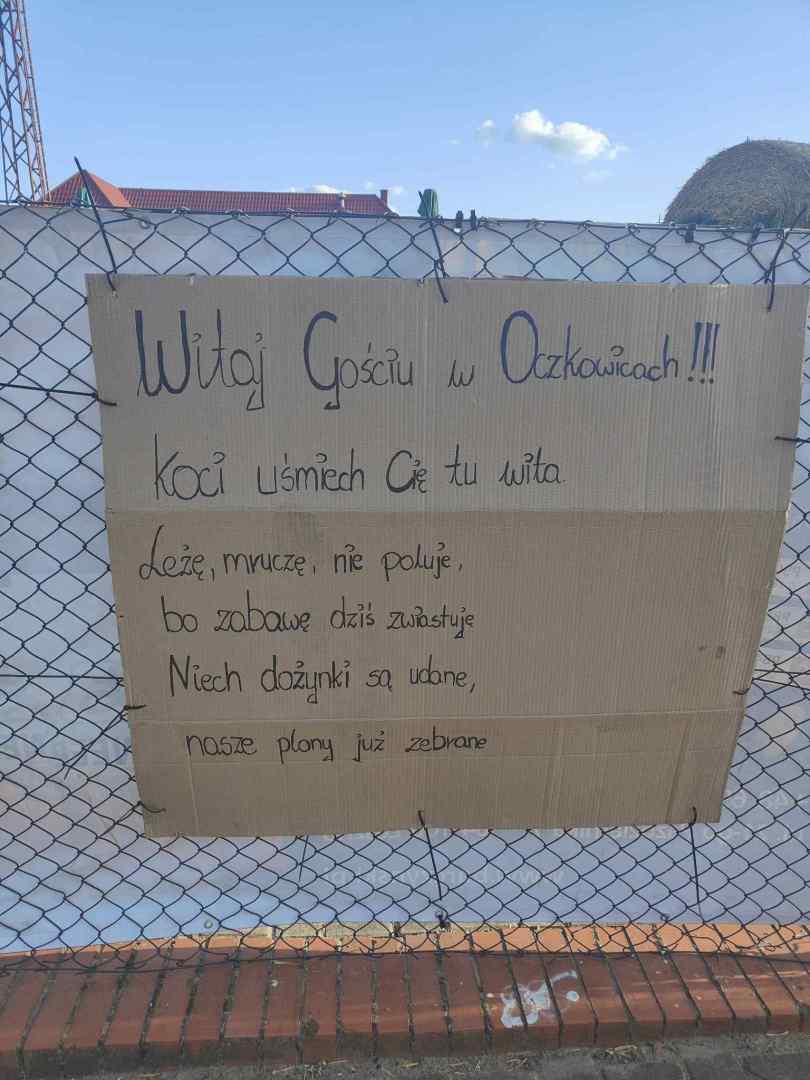 Witaj Gościu w Oczkowicach!!!
Koci uśmiech Cię tu wita.
Leżę, mruczę, nie poluje,
bo zabawę dziś zwiastuję
Niech dożynki są udane,
nasze plony już zebrane